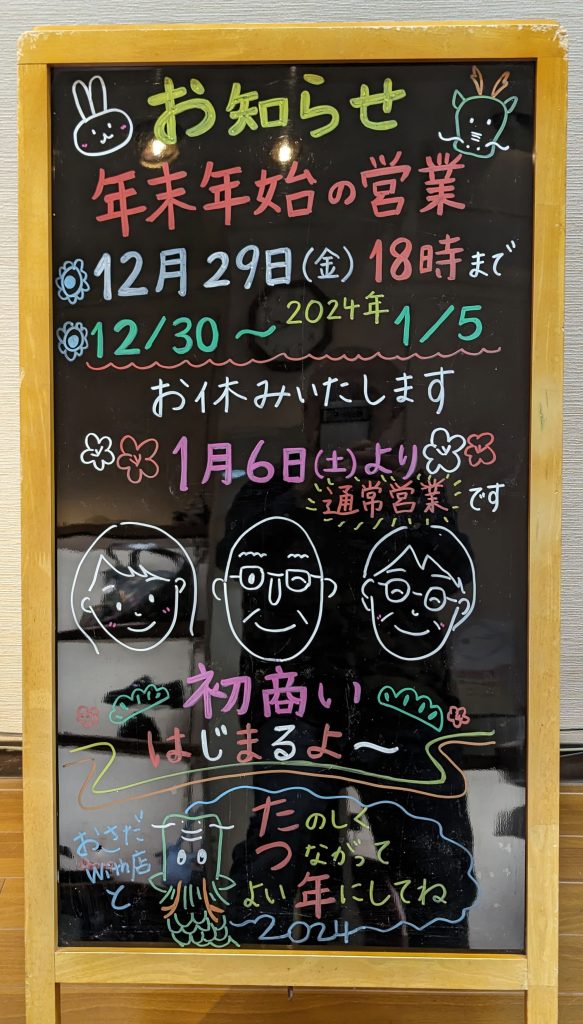 お知らせ
年末年始の営業
12月29日(金) 18時まで
12/30〜2024年 1/5
お休みいたします
1月6日(土)より
通常営業です
初商い
はじまるよ〜
おさだ
With店
と
たのしく
つながって
よい年にしてね
2024